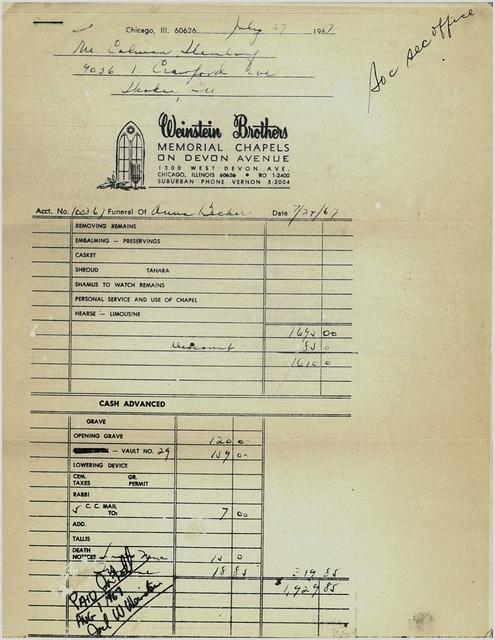 Soc sec office
Chicago, Ill. 60626 July 27 1967
Mr Calman
9036 N. Crawford Ave
Ill
Weinstein Brothers
MEMORIAL CHAPELS
ON DEVON AVENUE
1300 WEST DEVON AVE.
CHICAGO, ILLINOIS 60626 • RO 1-2400
SUBURBAN PHONE VERNON 5-2004
Acct. No. 10036 Funeral Of Anna Becker Date 7/25/67
REMOVING REMAINS
EMBALMING — PRESERVINGS
CASKET
SHROUD TAHARA
SHAMUS TO WATCH REMAINS
PERSONAL SERVICE AND USE OF CHAPEL
HEARSE — LIMOUSINE
1695 00
Discount 85 0
1610 0
CASH ADVANCED
GRAVE
OPENING GRAVE 120 0
— VAULT NO. 29 159 00
LOWERING DEVICE
CEM. TAXES GR. PERMIT
RABBI
C. C. MAIL TO: 7 00
ADD.
TALLIS
DEATH NOTICES 15 0
18 85 319 85
$1,929 85
PAID
AUG 1 1967